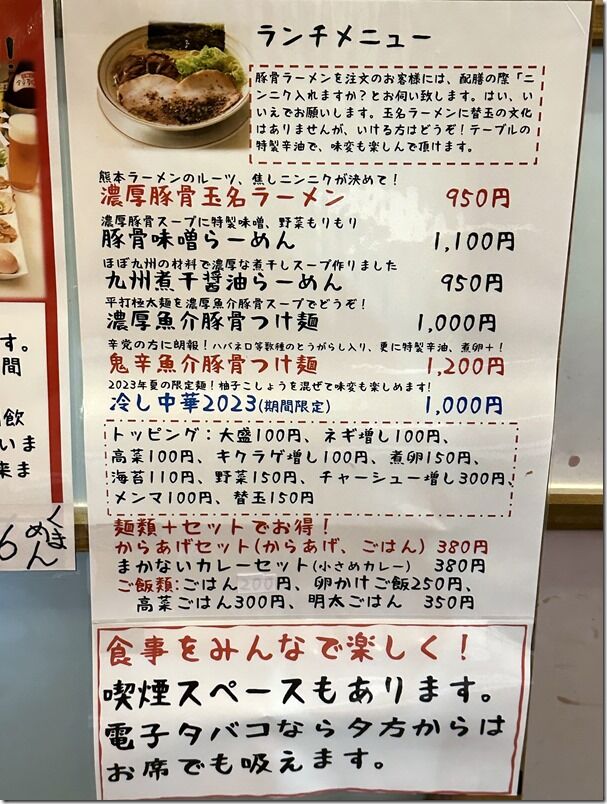 ランチメニュー
豚骨ラーメンを注文のお客様には、配膳の際「ニ
ンニク入れますか？とお伺い致します。はい、い
いえでお願いします。玉名ラーメンに替玉の文化
はありませんが、いける方はどうぞ！テーブルの
特製辛油で、味変も楽しんで頂けます。
熊本ラーメンのルーツ、焦しニンニクが決めて！
濃厚豚骨玉名ラーメン 950円
濃厚豚骨スープに特製味噌、野菜もりもり
豚骨味噌らーめん 1,100円
ほぼ九州の材料で濃厚な煮干しスープ作りました
九州煮干醤油らーめん 950円
平打極太麺を濃厚魚介豚骨スープでどうぞ！
濃厚魚介豚骨つけ麺 1,000円
辛党の方に朗報！ハバネロ等数種のとうがらし入り、更に特製辛油、煮卵＋！
鬼辛魚介豚骨つけ麺 1,200円
2023年夏の限定麺！柚子こしょうを混ぜて味変も楽しめます！
冷し中華2023(期間限定) 1,000円
トッピング：大盛100円、ネギ増し100円、
高菜100円、キクラゲ増し100円、煮卵150円、
海苔110円、野菜150円、チャーシュー増し300円、
メンマ100円、替玉150円
麺類＋セットでお得！
からあげセット(からあげ、ごはん) 380円
まかないカレーセット(小さめカレー) 380円
ご飯類:ごはん200円、卵かけご飯250円、
高菜ごはん300円、明太ごはん 350円
食事をみんなで楽しく！
喫煙スペースもあります。
電子タバコなら夕方からは
お席でも吸えます。
！
す。
間
飲
いま
来ま
6
くまめん